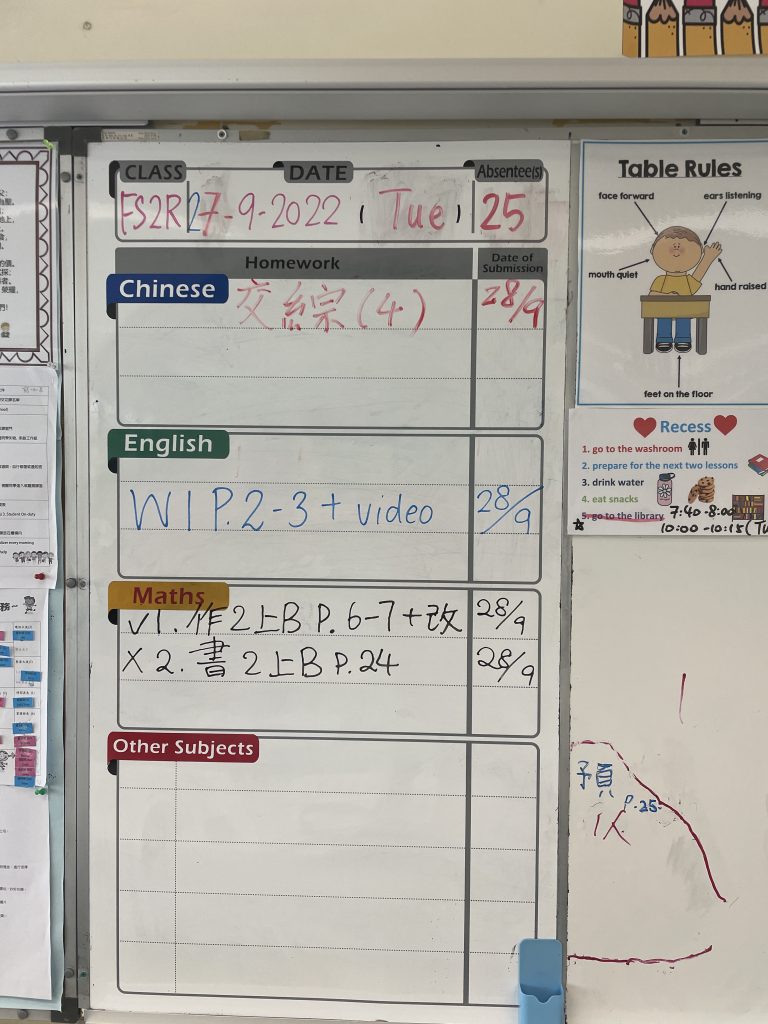 CLASS DATE Absentee(s)
FS2R 27-9-2022 (Tue) 25
Homework Date of Submission
Chinese
交綜(4) 28/9
English
W1 P.2-3 + video 28/9
Maths
√1. 作2上B P. 6-7+改 28/9
X 2. 書2上B P.24 28/9
Other Subjects
Table Rules
face forward
ears listening
mouth quiet
hand raised
feet on the floor
Recess
1. go to the washroom
2. prepare for the next two lessons
3. drink water
4. eat snacks
5. go to the library 7:40-8:00
10:00-10:15 (Tu
預
P.25